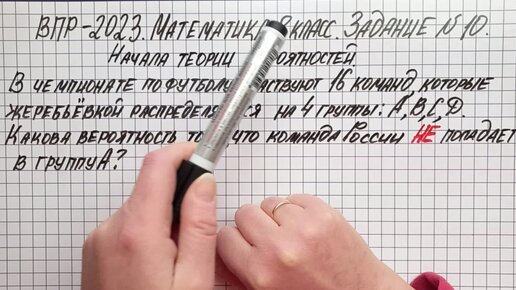 ВПР-2023. МАТЕМАТИКА 8 КЛАСС. ЗАДАНИЕ №10.
НАЧАЛА ТЕОРИИ
В ЧЕМПИОНАТЕ ПО ФУТБОЛУ 16 КОМАНД, КОТОРЫЕ
ЖЕРЕБЬЁВКОЙ НА 4 ГРУППЫ: A, B, C, D.
КАКОВА ВЕРОЯТНОСТЬ ЧТО КОМАНДА РОССИИ НЕ ПОПАДАЕТ
В ГРУППУ А?